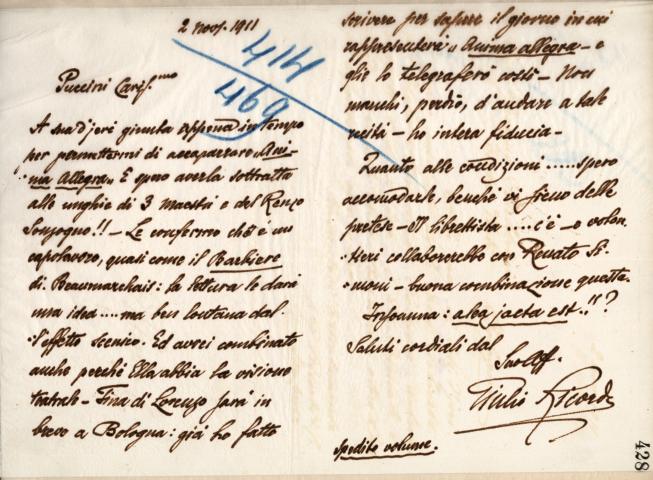 2 nov. 1911
414
469
Puccini Cariss.mo
A sua d'jeri giunta appena in tempo
per permettermi di accaparrare "Ani-
ma Allegra." E spero averla sottratta
alle unghie di 3 maestri e del Renzo
Sonzogno!! – Le confermo ch'è un
capolavoro, quasi come il Barbiere
di Beaumarchais: la lettura le darà
una idea .... ma ben lontana dal-
l'effetto scenico. Ed avrei combinato
anche perché Ella abbia la visione
teatrale – Tina di Lorenzo sarà in
breve a Bologna: già ho fatto
scrivere per sapere il giorno in cui
rappresenterà "Anima allegra – e
glie lo telegraferò costì – Non
manchi, perdio, d'andare a tale
recita – ho intera fiducia –
Quanto alle condizioni ..... spero
accomodarle, benché vi sieno delle
pretese – Il librettista .... c'è – e volon-
tieri collaborerebbe con Renato Si-
moni – buona combinazione questa.
Insomma: alea jacta est..!! ?
Saluti cordiali dal
Suo Aff.
Giulio Ricordi
spedito volume.
428